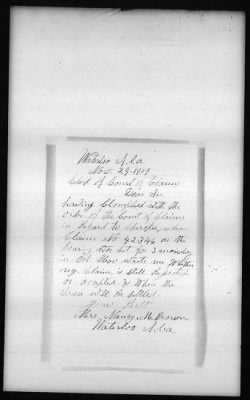 Waterloo Ala
Nov. 29-1909
Clerk of Court of Claims
Dear Sir
having Complied with the
order of the Court of Claims
in Regard to Cherokee
Claim No 42346 as the
hearing was set for 3 monday
in Oct Please write me Whether
my Claim is still Reported
or accepted & When the
same will be settled.
Yours Rest
Mrs Nancy M. Brown
Waterloo Ala